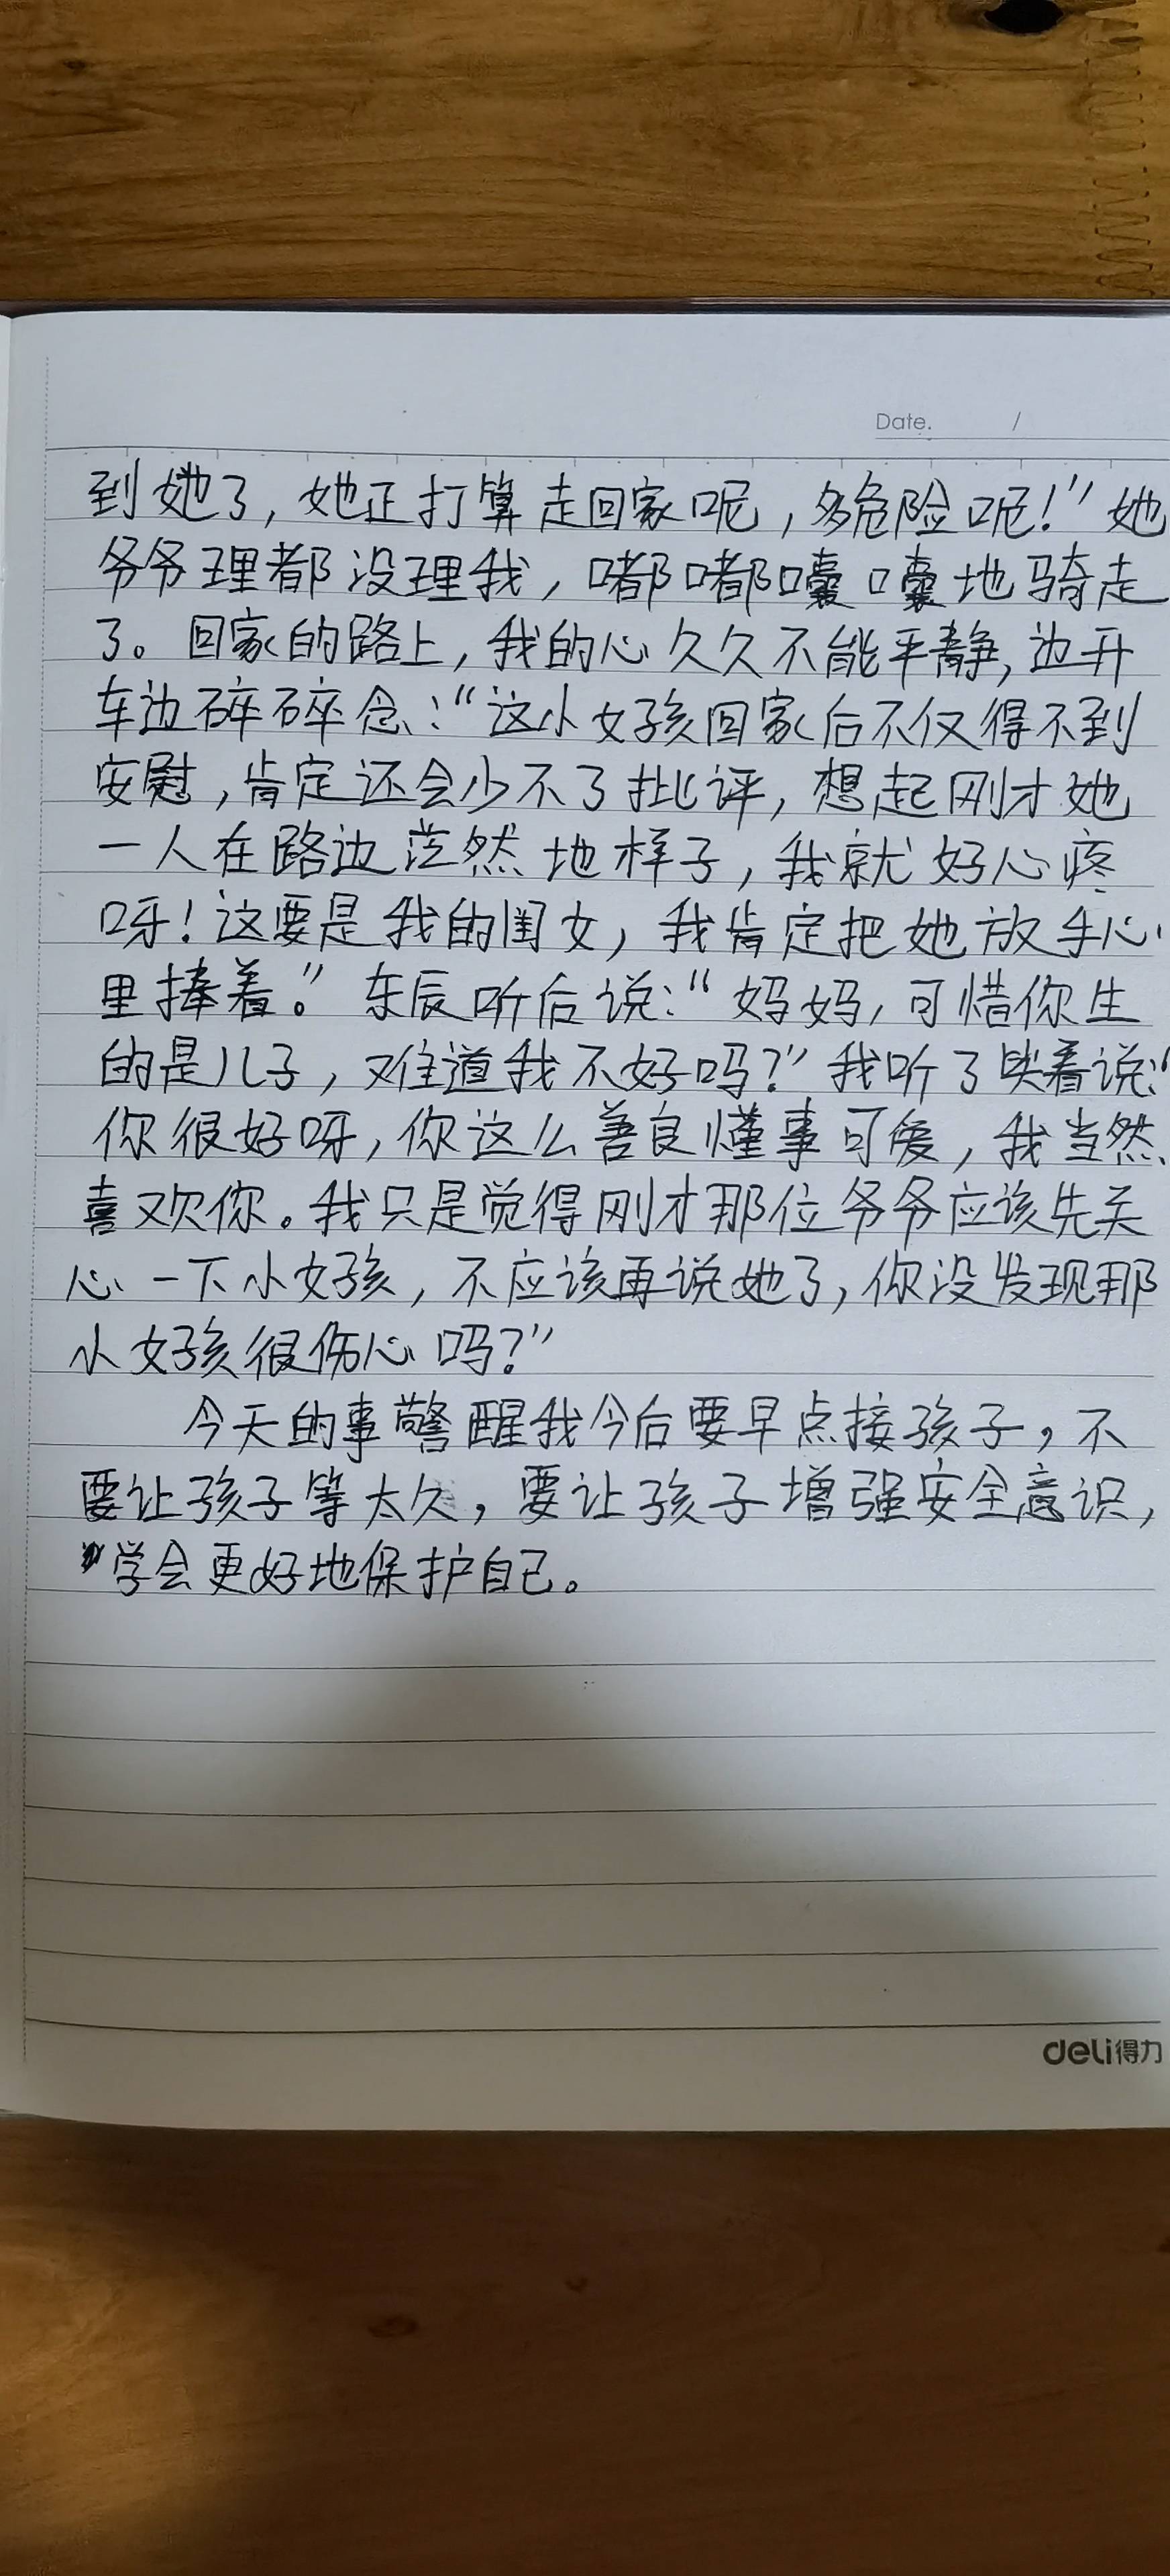 Date. /
到她了，她正打算走回家呢，多危险呢！”她
爷爷理都没理我，嘟嘟囔囔地骑走
了。回家的路上，我的心久久不能平静，边开
车边碎碎念：“这小女孩回家后不仅得不到
安慰，肯定还会少不了批评，想起刚才她
一人在路边茫然地样子，我就好心疼
呀！这要是我的闺女，我肯定把她放手心
里捧着。”东辰听后说：“妈妈，可惜你生
的是儿子，难道我不好吗？”我听了笑着说：“
你很好呀，你这么善良懂事可爱，我当然
喜欢你。我只是觉得刚才那位爷爷应该先关
心一下小女孩，不应该再说她了，你没发现那
小女孩很伤心吗？”
今天的事警醒我今后要早点接孩子，不
要让孩子等太久，要让孩子增强安全意识，
学会更好地保护自己。
deli得力